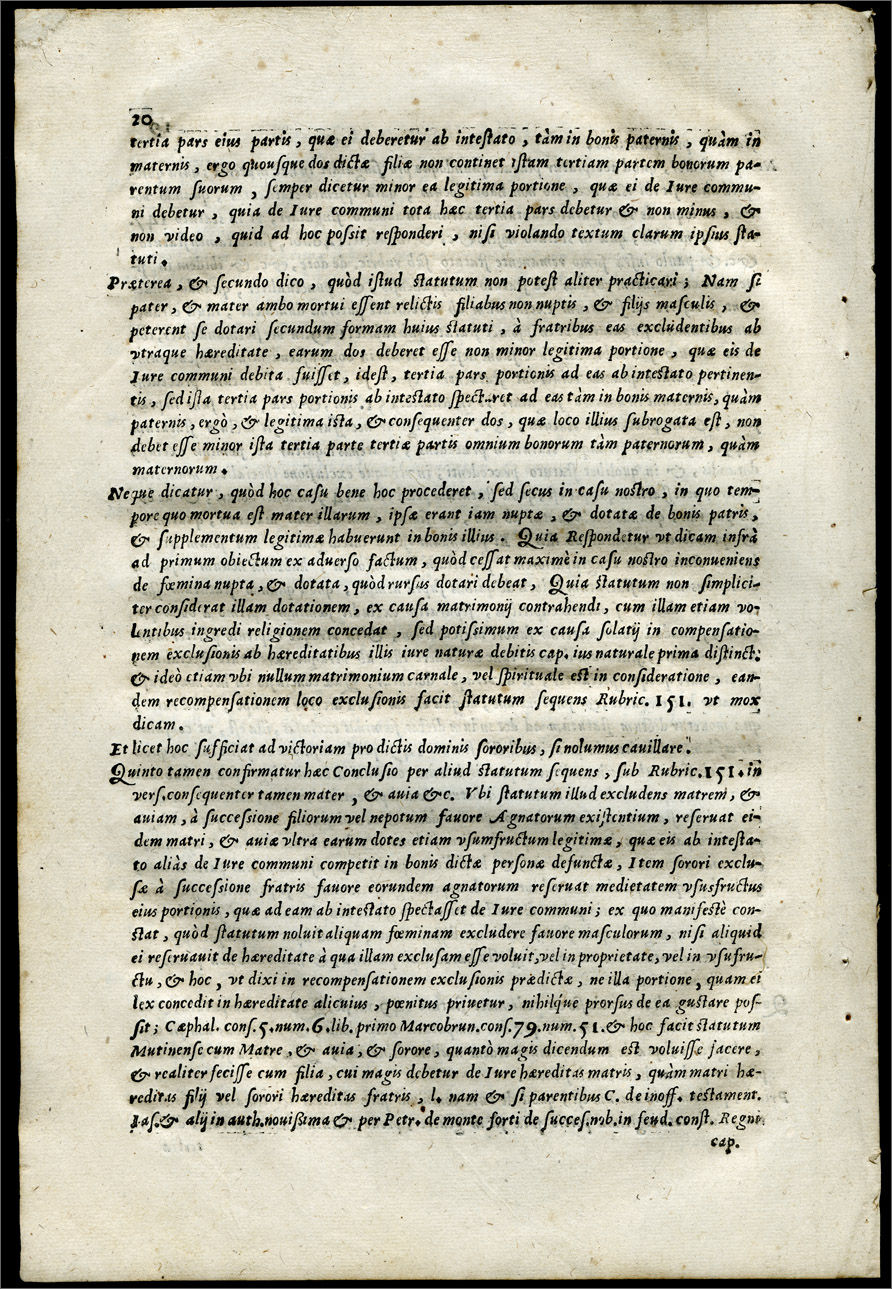 20
tertia pars eius partis, quæ ei deberetur ab intestato, tàm in bonis paternis, quàm in
maternis, ergo quousque dos dictæ filiæ non continet istam tertiam partem bonorum pa-
rentum suorum, semper dicetur minor ea legitima portione, quæ ei de Iure commu-
ni debetur, quia de Iure communi tota hæc tertia pars debetur & non minus, &
non video, quid ad hoc possit responderi, nisi violando textum clarum ipsius sta-
tuti.
Præterea, & secundo dico, quòd istud statutum non potest aliter practicari; Nam si
pater, & mater ambo mortui essent relictis filiabus non nuptis, & filijs masculis, &
peterent se dotari secundum formam huius statuti, à fratribus eas excludentibus ab
vtraque hæreditate, earum dos deberet esse non minor legitima portione, quæ eis de
Iure communi debita fuisset, idest, tertia pars portionis ad eas ab intestato pertinen-
tis, sed ista tertia pars portionis ab intestato spectaret ad eas tàm in bonis maternis, quàm
paternis, ergò, & legitima ista, & consequenter dos, quæ loco illius subrogata est, non
debet esse minor ista tertia parte tertiæ partis omnium bonorum tàm paternorum, quàm
maternorum.
Neque dicatur, quòd hoc casu bene hoc procederet, sed secus in casu nostro, in quo tem-
pore quo mortua est mater illarum, ipsæ erant iam nuptæ, & dotatæ de bonis patris,
& supplementum legitimæ habuerunt in bonis illius. Quia Respondetur vt dicam infrà
ad primum obiectum ex aduerso factum, quòd cessat maximè in casu nostro inconueniens
de fœmina nupta, & dotata, quòd rursus dotari debeat, Quia statutum non simplici-
ter considerat illam dotationem, ex causa matrimonij contrahendi, cum illam etiam vo-
lentibus ingredi religionem concedat, sed potissimum ex causa solatij in compensatio-
nem exclusionis ab hæreditatibus illis iure naturæ debitis cap. ius naturale prima distinct.
& ideò etiam vbi nullum matrimonium carnale, vel spirituale est in consideratione, ean-
dem recompensationem loco exclusionis facit statutum sequens Rubric. 151. vt mox
dicam.
Et licet hoc sufficiat ad victoriam pro dictis dominis sororibus, si nolumus cauillare.
Quinto tamen confirmatur hæc Conclusio per aliud statutum sequens, sub Rubric. 151. in
vers. consequenter tamen mater, & auia &c. Vbi statutum illud excludens matrem, &
auiam, à successione filiorum vel nepotum fauore Agnatorum existentium, reseruat ei-
dem matri, & auiæ vltra earum dotes etiam vsumfructum legitimæ, quæ eis ab intesta-
to aliàs de Iure communi competit in bonis dictæ personæ defunctæ, Item sorori exclu-
sæ à successione fratris fauore eorundem agnatorum reseruat medietatem vsusfructus
eius portionis, quæ ad eam ab intestato spectasset de Iure communi; ex quo manifestè con-
stat, quòd statutum noluit aliquam fœminam excludere fauore masculorum, nisi aliquid
ei reseruauit de hæreditate à qua illam exclusam esse voluit, vel in proprietate, vel in vsufru-
ctu, & hoc, vt dixi in recompensationem exclusionis prædictæ, ne illa portione, quam ei
lex concedit in hæreditate alicuius, pœnitus priuetur, nihilq́ue prorsus de ea gustare pos-
sit; Cæphal. cons. 5. num. 6. lib. primo Marcobrun. cons. 79. num. 51. & hoc facit statutum
Mutinense cum Matre, & auia, & sorore, quantò magis dicendum est voluisse facere,
& realiter fecisse cum filia, cui magis debetur de Iure hæreditas matris, quàm matri hæ-
reditas filij vel sorori hæreditas fratris, l. nam & si parentibus C. de inoff. testament.
Ias. & alij in auth. nouissima & per Petr. de monte forti de succes. nob. in feud. const. Regni
cap.